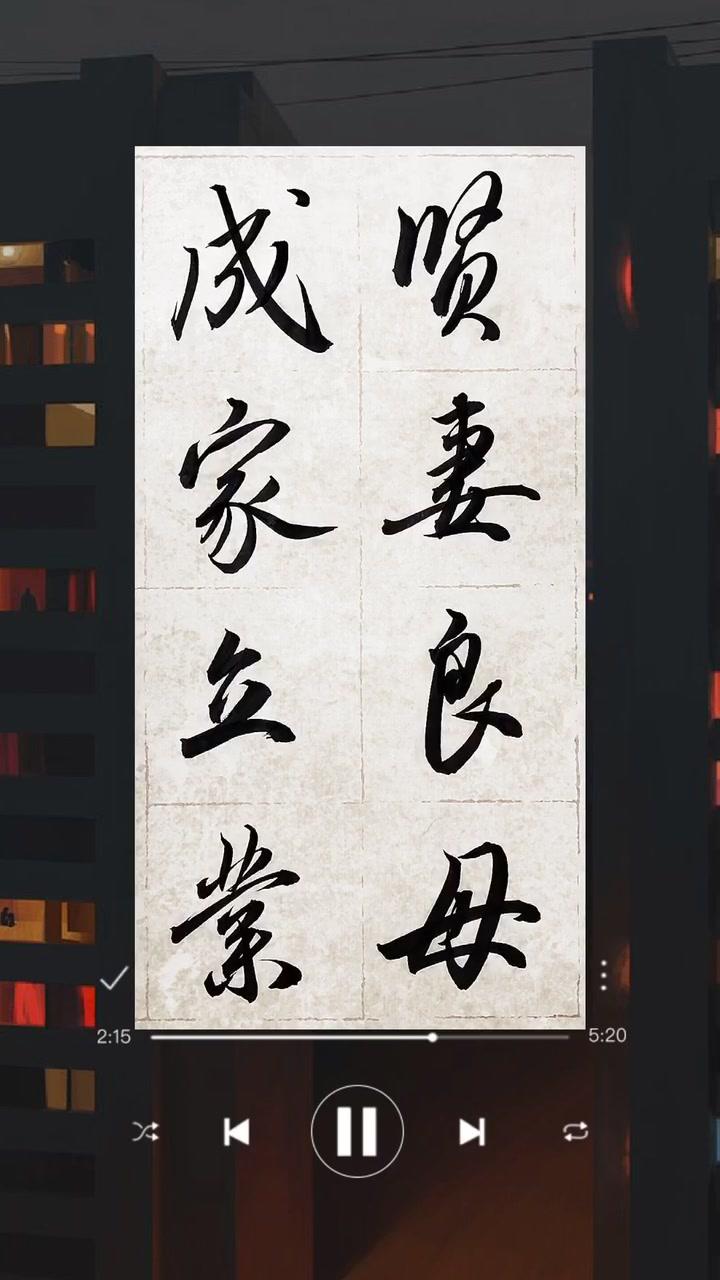 贤妻良母
成家立業
2:15 5:20